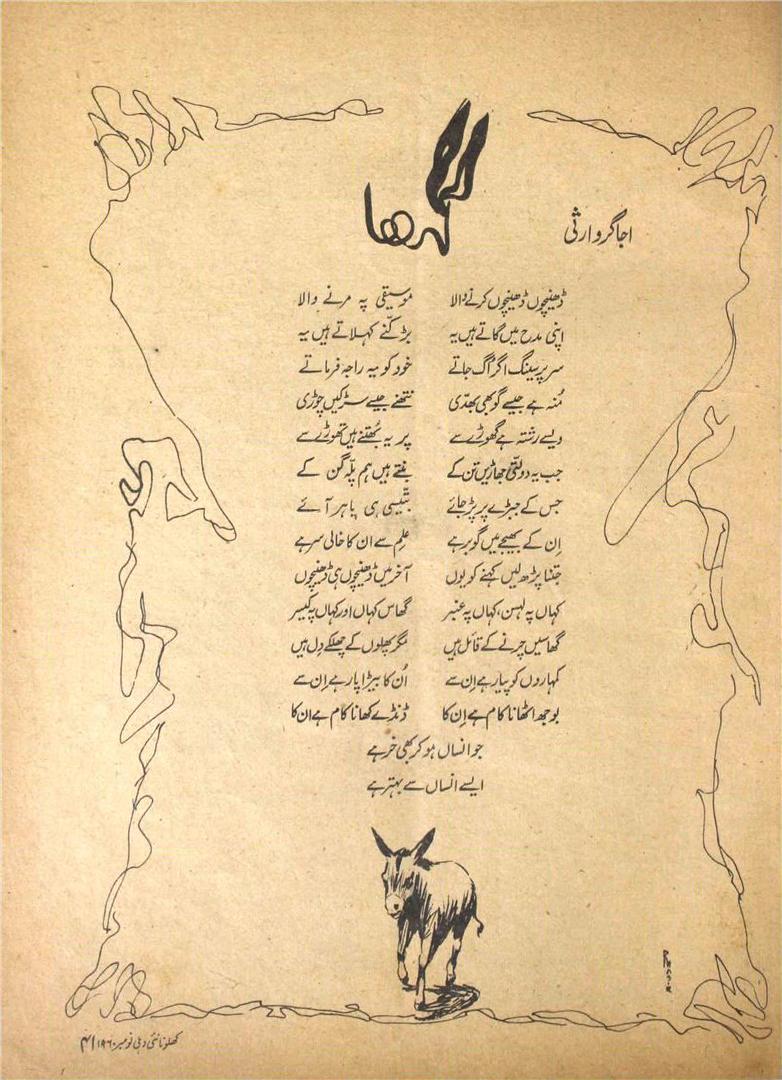 گدھا
اجاگر وارثی
ڈھینچوں ڈھینچوں کرنے والا موسیقی پہ مرنے والا
اپنی مدح میں گاتے ہیں یہ بڑ کنّے کہلاتے ہیں یہ
سر پر سینگ اگر اُگ جاتے خود کو یہ راجہ فرماتے
مُنہ ہے جیسے گوبھی بھدّی نتھنے جیسے سڑکیں چوڑی
ویسے رشتہ ہے گھوڑے سے پر یہ بُھتنے ہیں تھوڑے سے
جب یہ دولتّی جھاڑیں تن کے بنتے ہیں ہم پلّہ گن کے
جس کے جبڑے پر پڑ جائے بتّیسی ہی باہر آئے
اِن کے بھیجے میں گوبر ہے علم سے ان کا خالی سر ہے
جتنا پڑھ لیں کہنے کو یوں آخر میں ڈھینچوں ہی ڈھینچوں
کہاں یہ لہسن، کہاں یہ عنبر گھاس کہاں اور کہاں یہ کیسر
گھاسیں چرنے کے قائل ہیں مگر پھلوں کے چھلکے دِل ہیں
کمہاروں کو پیار ہے اِن سے اُن کا بیڑا پار ہے اِن سے
بوجھ اٹھانا کام ہے اِن کا ڈنڈے کھانا کام ہے ان کا
جو انساں ہو کر بھی خر ہے
ایسے انساں سے بہتر ہے
کھلونا نئی دہلی نومبر ۱۹۶۰ / ۴۱